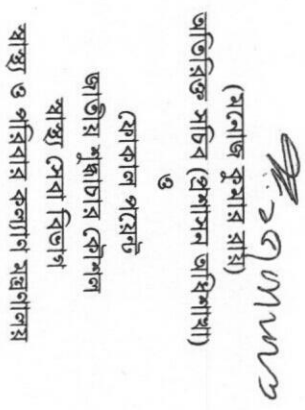 (মনোজ কুমার রায়)
অতিরিক্ত সচিব (প্রশাসন অধিশাখা)
ও
ফোকাল পয়েন্ট
জাতীয় শুদ্ধাচার কৌশল
স্বাস্থ্য সেবা বিভাগ
স্বাস্থ্য ও পরিবার কল্যাণ মন্ত্রণালয়